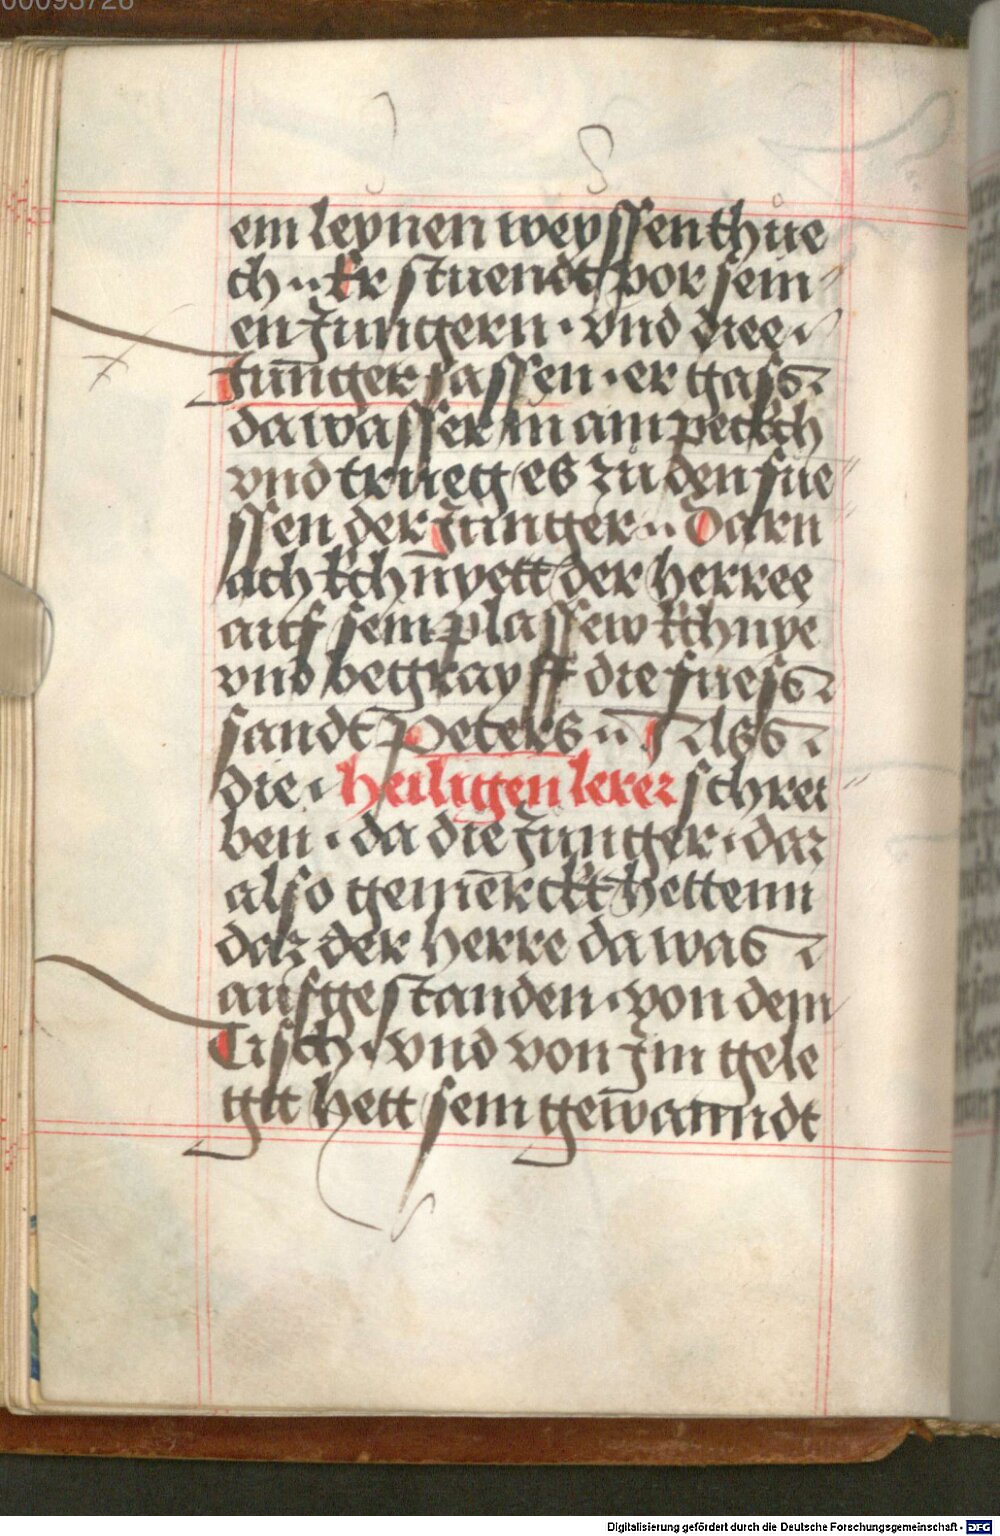 00095726
em leynen weyssen thůe
ch ·· Er stuendt vor sein
en Jungern · vnd die ·
Jūnger sassen · er gass
da wasser in ain peckch
vnd trueg es zů den fue
ssen der Junger ·· Darn
ach kchn̄yett der herree
auf sein plassew kchnye
vnd begrayff die fuess
sandt Peters ·· Alss
die · heiligen lerer schrei
ben · da die Junger · daz
also gemērckt hettenn
daz der herre da was
aufgestanden · von dem
Tisch · vnd von Jm gele
git hett sein gew̄anndt
Digitalisierung gefördert durch die Deutsche Forschungsgemeinschaft - DFG